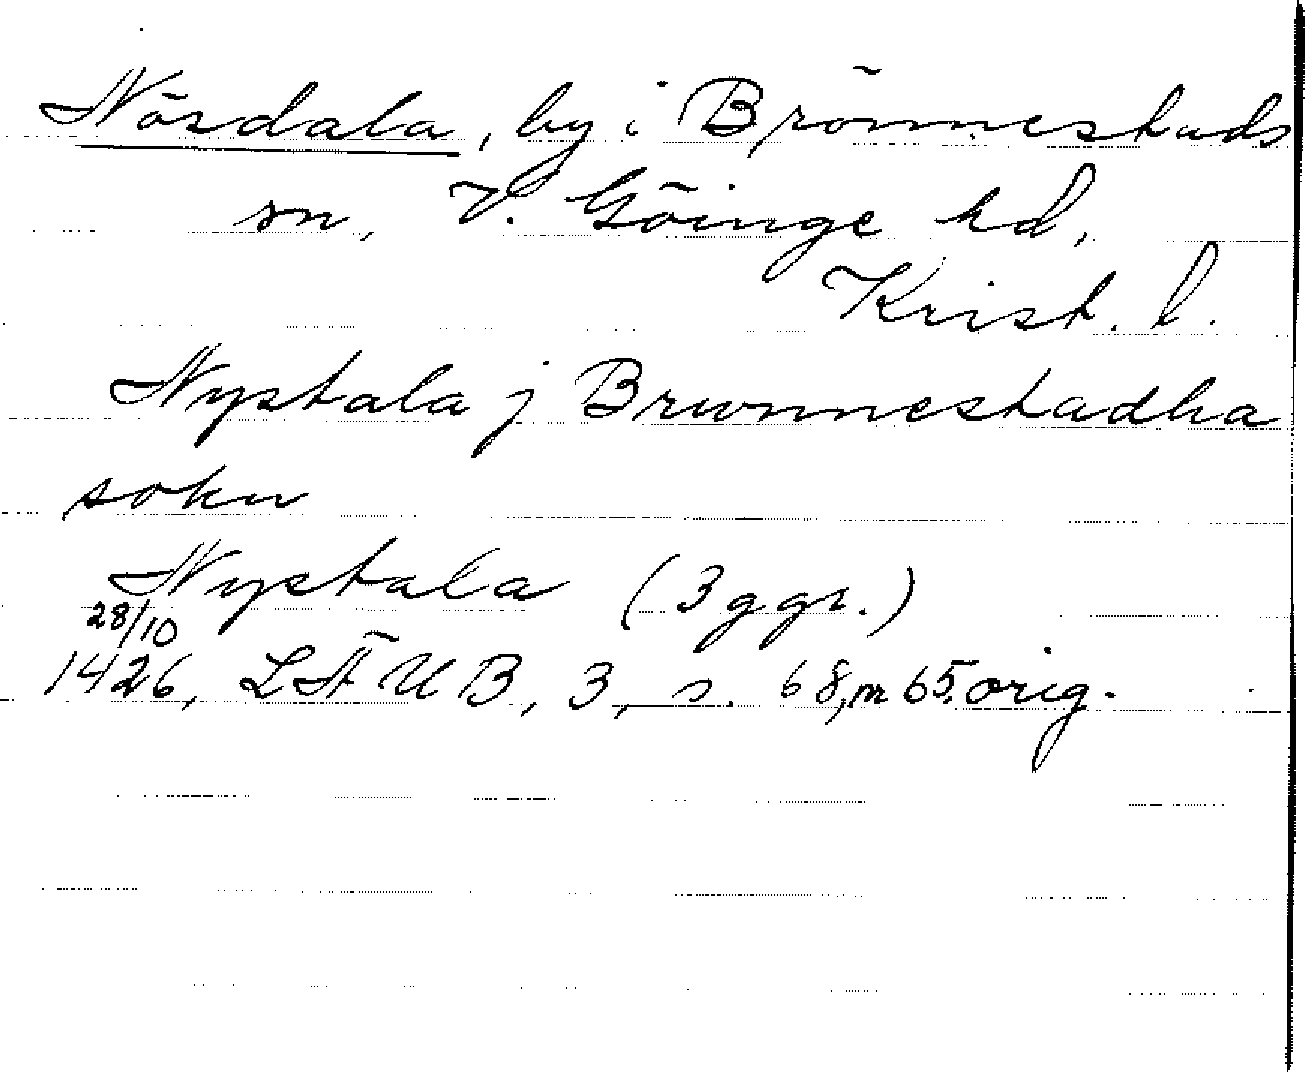 Nösdala, by i Brönnestads
sn, V. Göinge hd,
Krist. l.
Nystala j Brunnestadha
sokn
Nystala (3 ggr.)
28/10
1426, LÄUB, 3, s. 68, m 65, orig.